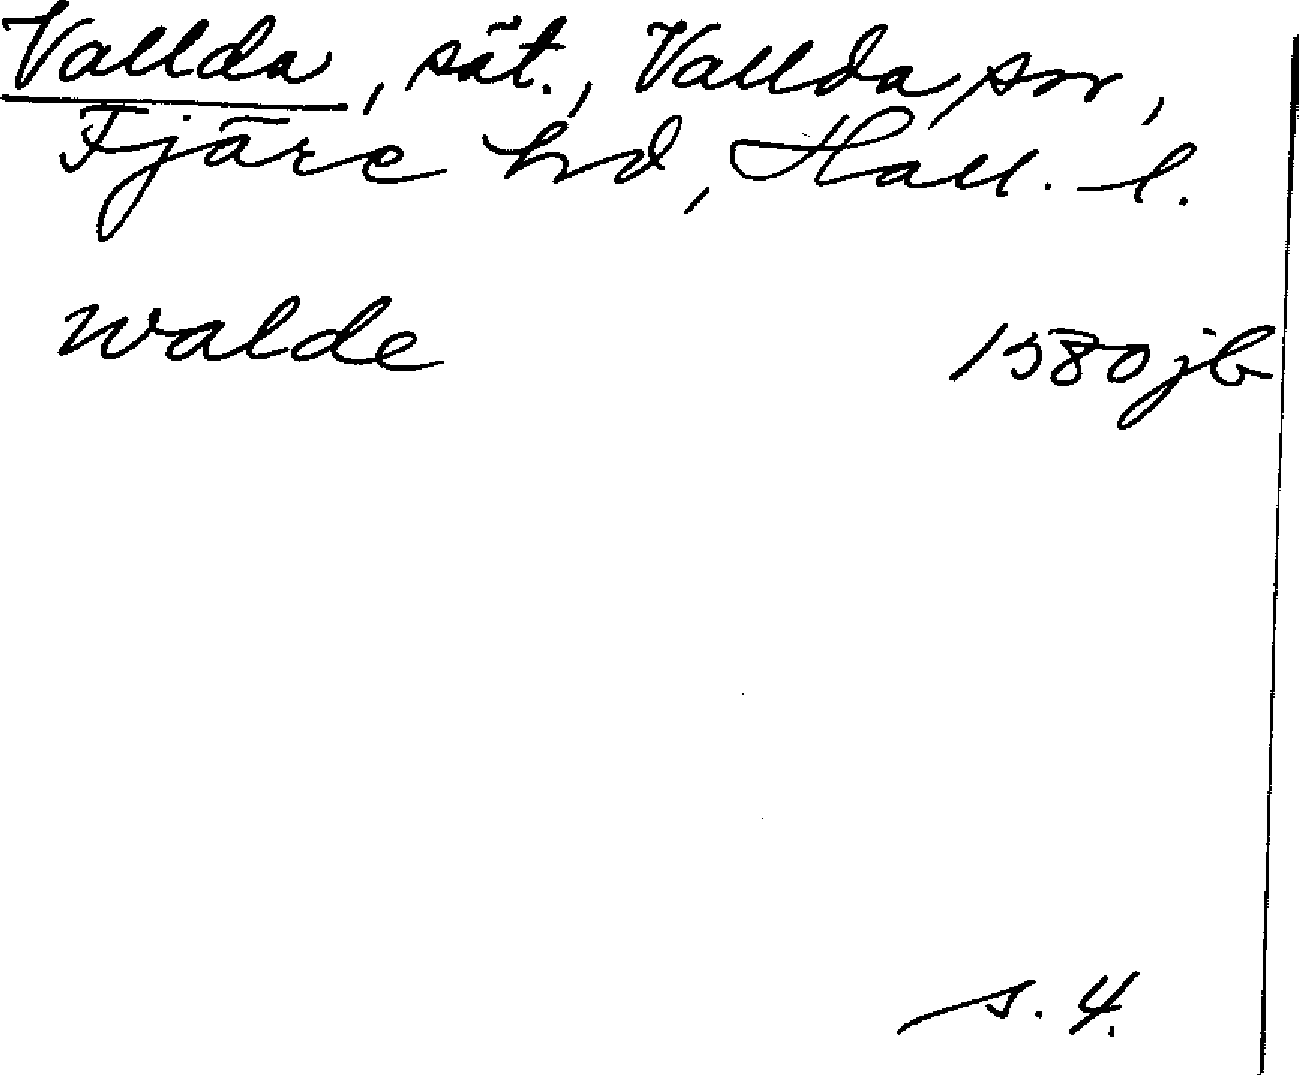 Vallda, sät., Vallda sn,
Fjäre hd, Hall. l.
Walde 1580 jb
s. 4.